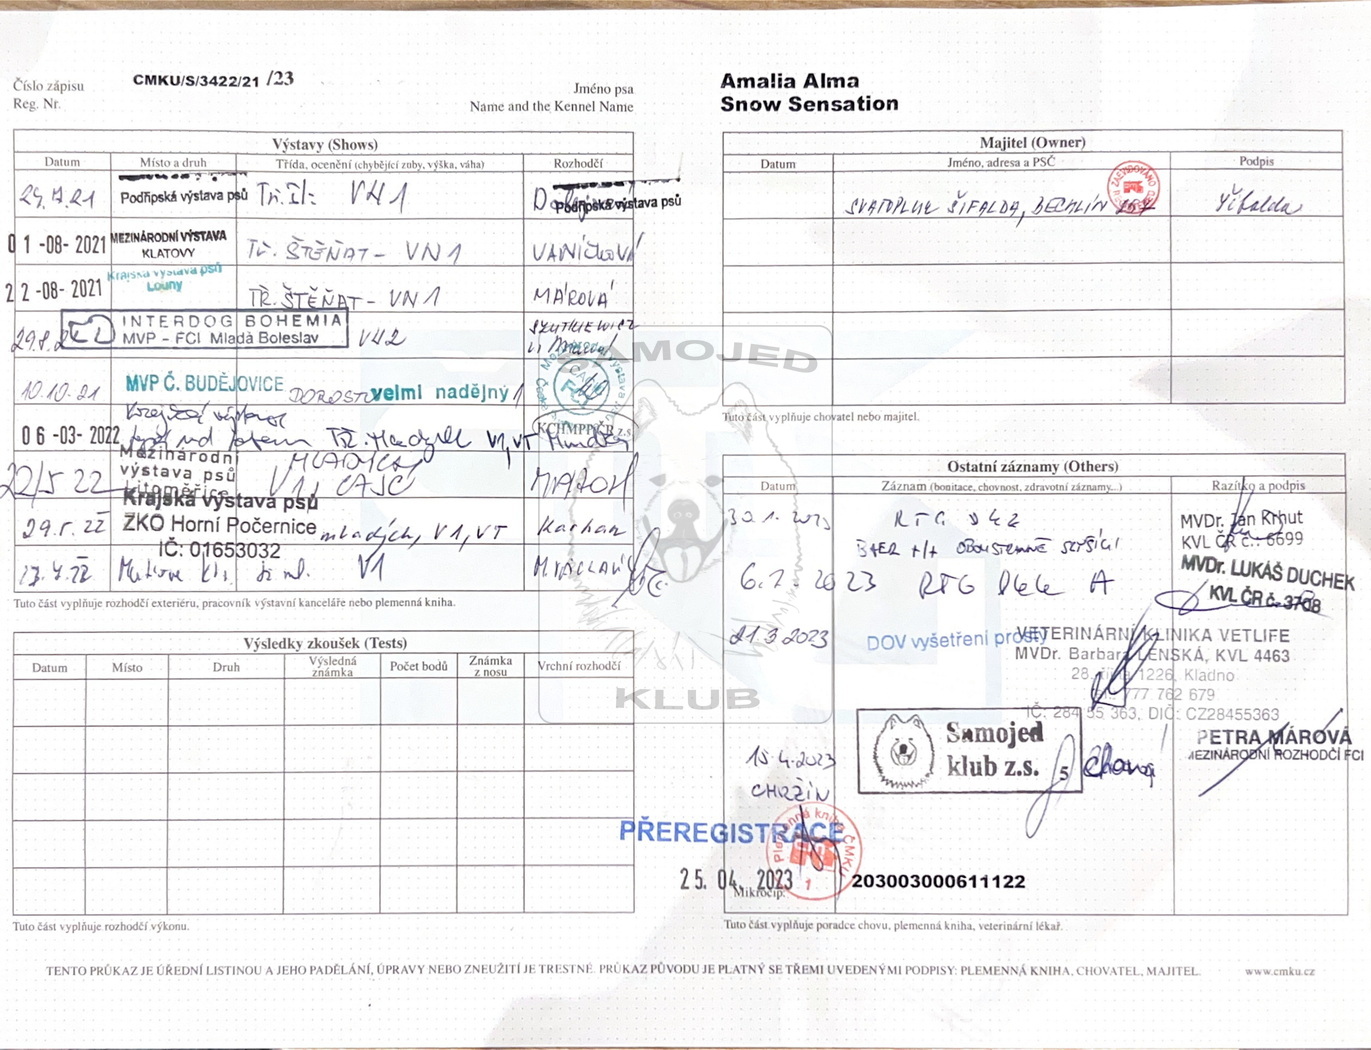 Číslo zápisu
Reg. Nr.
CMKU/S/3422/21 /23
Jméno psa
Name and the Kennel Name
Amalia Alma
Snow Sensation
Výstavy (Shows)
Datum Místo a druh Třída, ocenění (chybějící zuby, výška, váha) Rozhodčí
Podřipská výstava psů Podřipská výstava psů
01-08-2021 MEZINÁRODNÍ VÝSTAVA
KLATOVY
TŘ. ŠTĚŇAT - VN1 VANÍČKOVÁ
22-08-2021 Krajská výstava psů
Louny
TŘ. ŠTĚŇAT - VN1 MÁROVÁ
INTERDOG BOHEMIA
MVP - FCI Mladá Boleslav
10.10.21 MVP Č. BUDĚJOVICE DOROSTU velmi nadějný 1
06-03-2022 V1, VT
KCHMPP ČR z.s.
22/5 22 Mezinárodní
výstava psů
Litoměřice
V1, CAJC
29.5.22 Krajská výstava psů
ZKO Horní Počernice
IČ: 01653032
mladých, V1, VT Kachan
V1
Tuto část vyplňuje rozhodčí exteriéru, pracovník výstavní kanceláře nebo plemenná kniha.
Výsledky zkoušek (Tests)
Datum Místo Druh Výsledná
známka Počet bodů Známka
z nosu Vrchní rozhodčí
Tuto část vyplňuje rozhodčí výkonu.
SAMOJED
KLUB
Majitel (Owner)
Datum Jméno, adresa a PSČ Podpis
SVATOPLUK ŠIFALDA, BECHLÍN Šifalda
Tuto část vyplňuje chovatel nebo majitel.
Ostatní záznamy (Others)
Datum Záznam (bonitace, chovnost, zdravotní záznamy...) Razítko a podpis
30.1.2023 RTG
BAER +/+ OBOUSTRANNĚ SLYŠÍCÍ
MVDr. Jan Krhut
KVL ČR č.: 6699
2023 RTG A
MVDr. LUKÁŠ DUCHEK
KVL ČR č. 3708
21.3.2023 DOV vyšetření prostý
VETERINÁRNÍ KLINIKA VETLIFE
MVDr. Barbara LENSKÁ, KVL 4463
28. října 1226, Kladno
tel. 777 762 679
IČ: 284 55 363, DIČ: CZ28455363
15.4.2023
CHRŽÍN
Samojed
klub z.s. 5
Chovný
PETRA MÁROVÁ
MEZINÁRODNÍ ROZHODČÍ FCI
PŘEREGISTRACE
Plemenná kniha ČMKU
1
25. 04. 2023
Mikročip: 203003000611122
Tuto část vyplňuje poradce chovu, plemenná kniha, veterinární lékař.
TENTO PRŮKAZ JE ÚŘEDNÍ LISTINOU A JEHO PADĚLÁNÍ, ÚPRAVY NEBO ZNEUŽITÍ JE TRESTNÉ. PRŮKAZ PŮVODU JE PLATNÝ SE TŘEMI UVEDENÝMI PODPISY: PLEMENNÁ KNIHA, CHOVATEL, MAJITEL.
www.cmku.cz